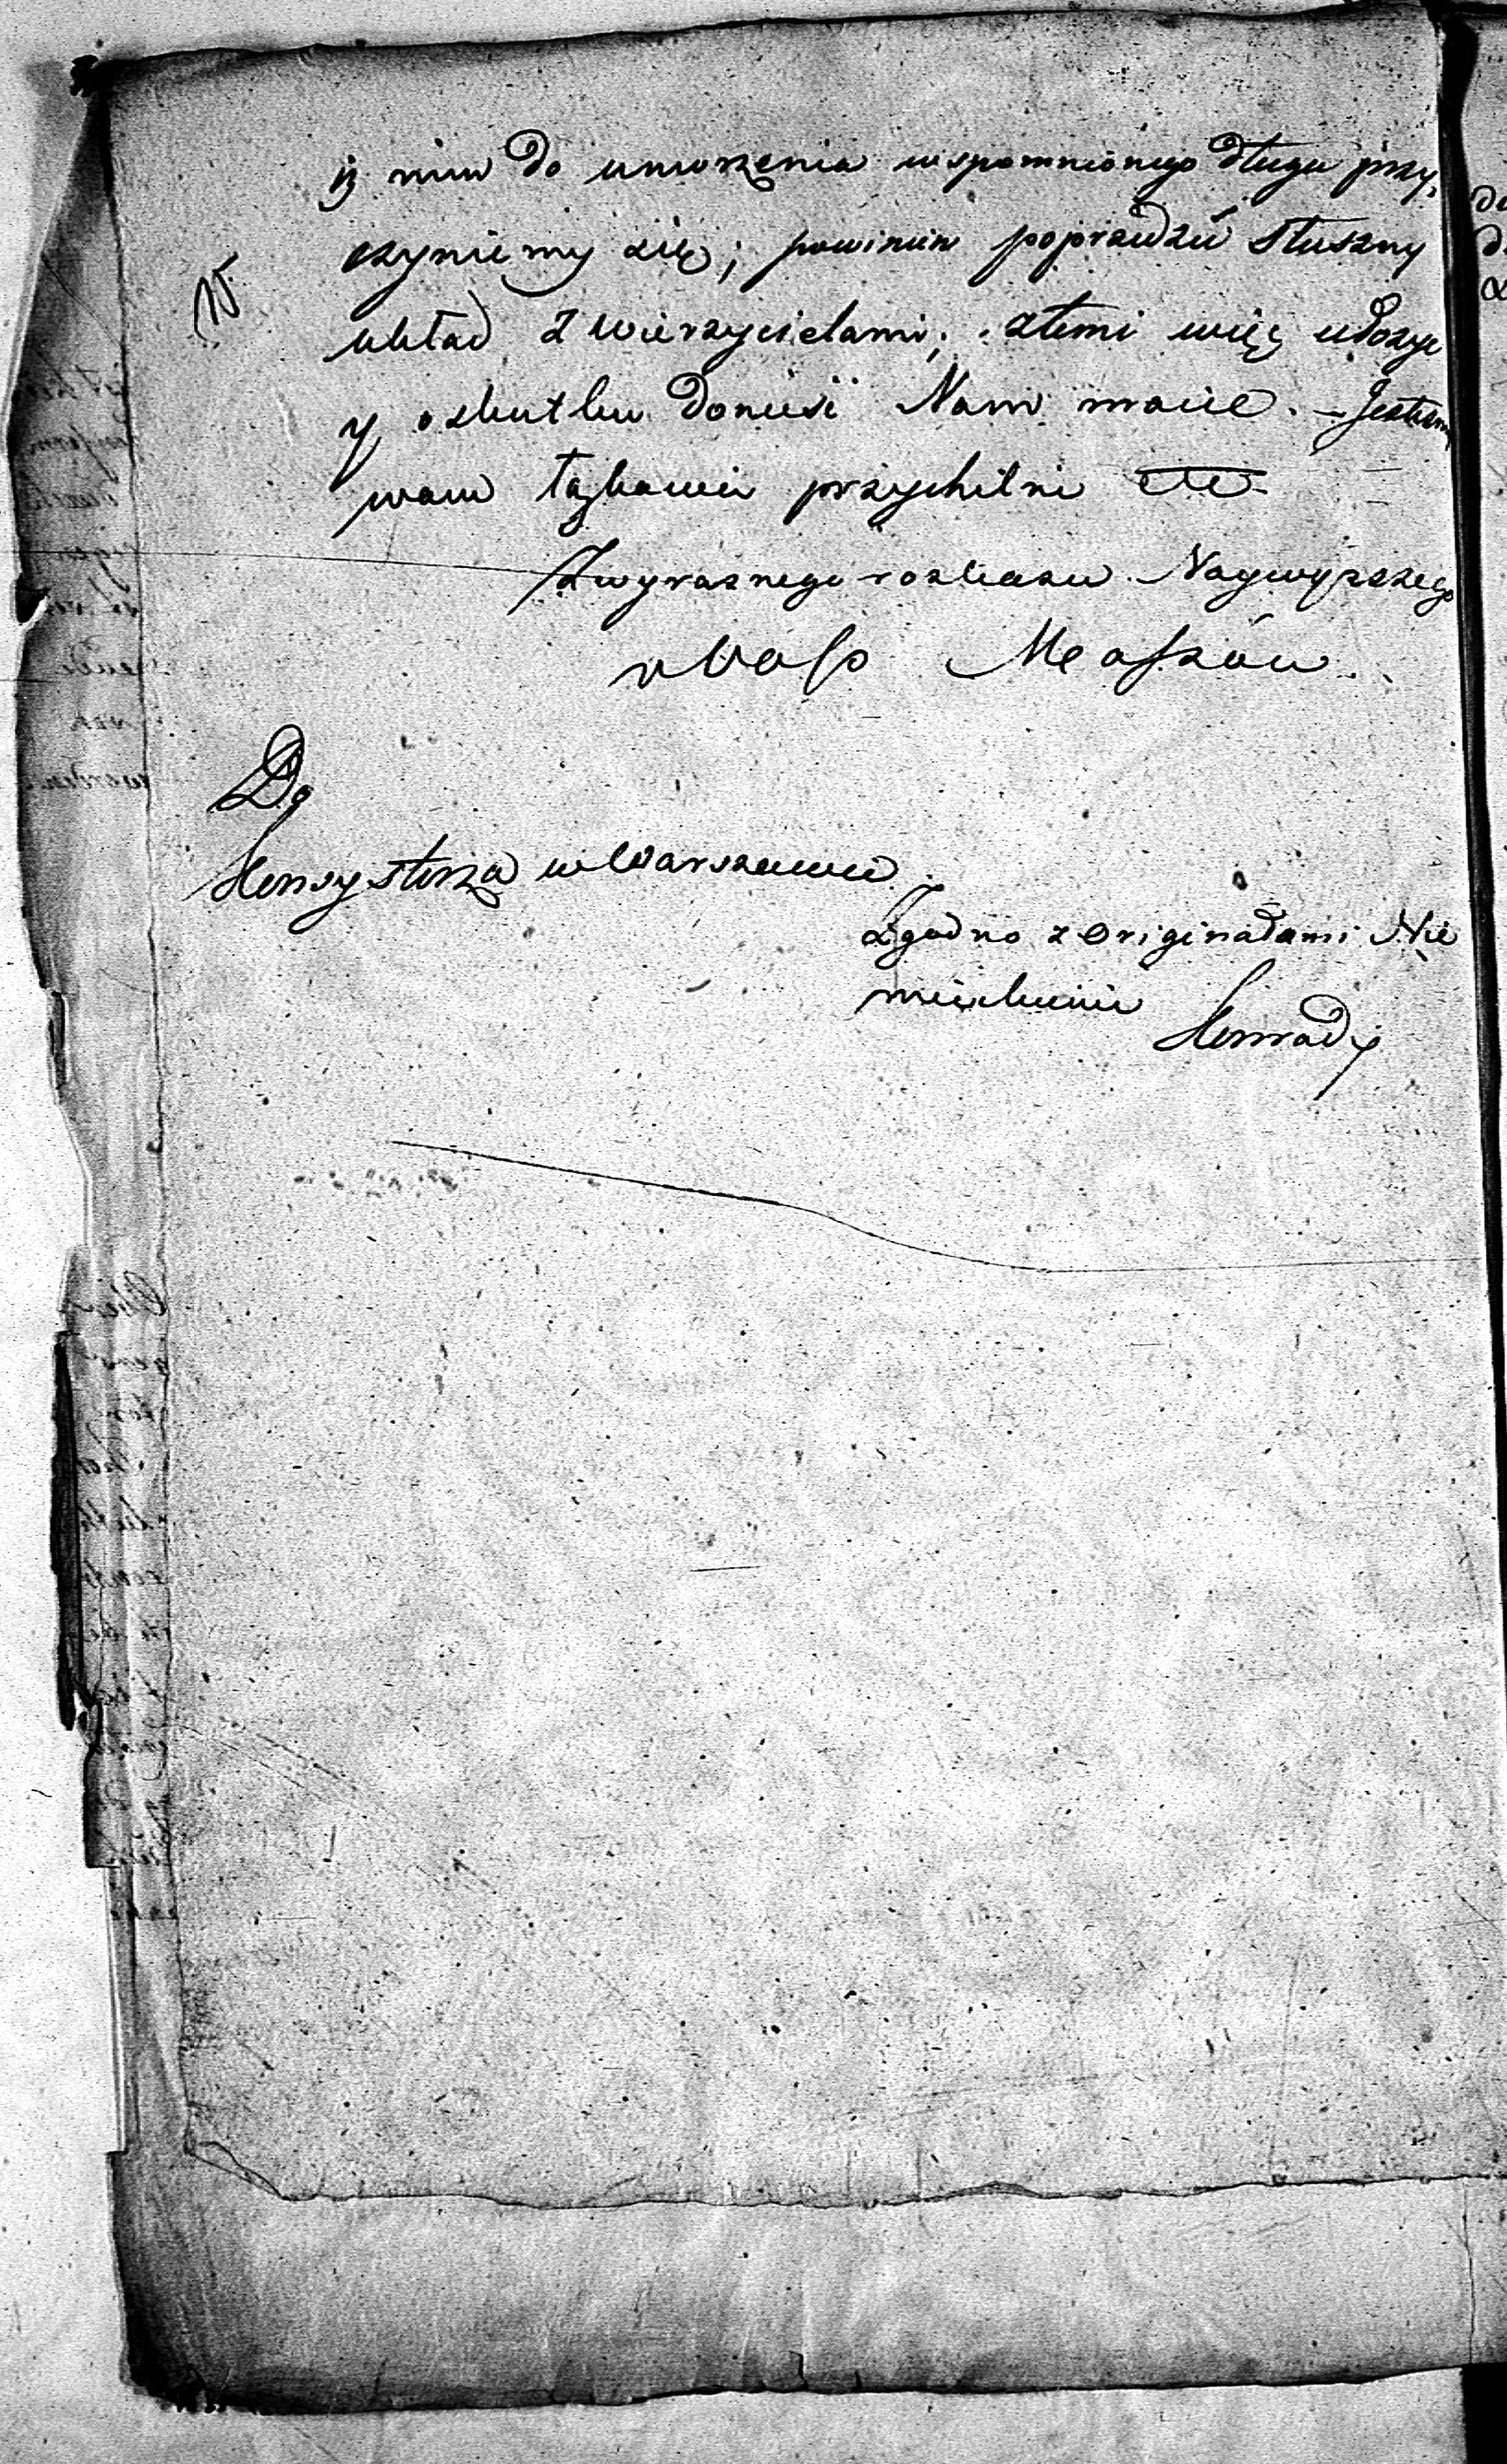 iż nim do umorzenia wspomnionego długu przy,
czyniemy się; powinien poprzedzić słuszny
układ z wierzycielami; z temi więc ułożyć
y o skutku donieść Nam macie. – Jesteśmy
wam łaskawie przychilni etc
Z wyraznego roskazu Naywyższego
v Voss Meassow
Do
Konsystorza w Warszawie
Zgodno z originałami Nie
mieckiemi Konrady